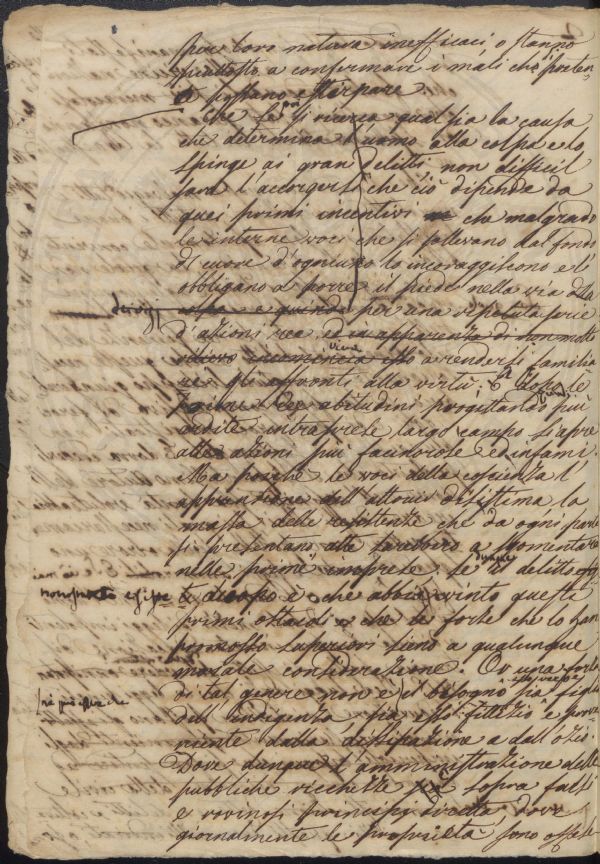 per loro natura inefficaci, o stanno
piuttosto a confermare i mali che preten
possano sterpare.
Che se poi si ricerca qual sia la causa
che determina l'uomo alla colpa e lo
spinge ai gran delitti non difficil
sarà l'accorgersi che ciò dipende da
quei primi incentivi che malgrado
le interne voci che si sollevano dal fondo
di cuore d'ognuno lo incoraggiscono e l'
obbligano a porre il piede nella via della
colpa e quindi per una ripetuta serie
d'azioni rea ed in apparenza di non molto
rilievo incomincia esso a rendersi familia
viene
ri gli affronti alla virtù; e dopo le
prime abitudini progettando più
ardite intraprese largo campo s'apre
alle azioni più facinorose ed infami.
Ma poiché le voci della coscienza l'
apprensione dell' altrui disistima la
massa delle resistenze che da ogni parte
si presentano a fomentare
nelle prime imprese se dunque il delitto
non guarda è d'uopo che abbia vinto questi
primi ostacoli e che le forze che lo han
promosso superiori sieno a qualunque
morale considerazione. Or una forte
di tal genere non è il bisogno sia figlio
né può essere che
dell' indigenza sia esso fittizio e prove
niente dalla dissipazione e dall' ozio.
Dove dunque l'amministrazione delle
pubbliche ricchezze sopra falsi
e rovinosi principj diretta, dove
giornalmente le proprietà sono offese